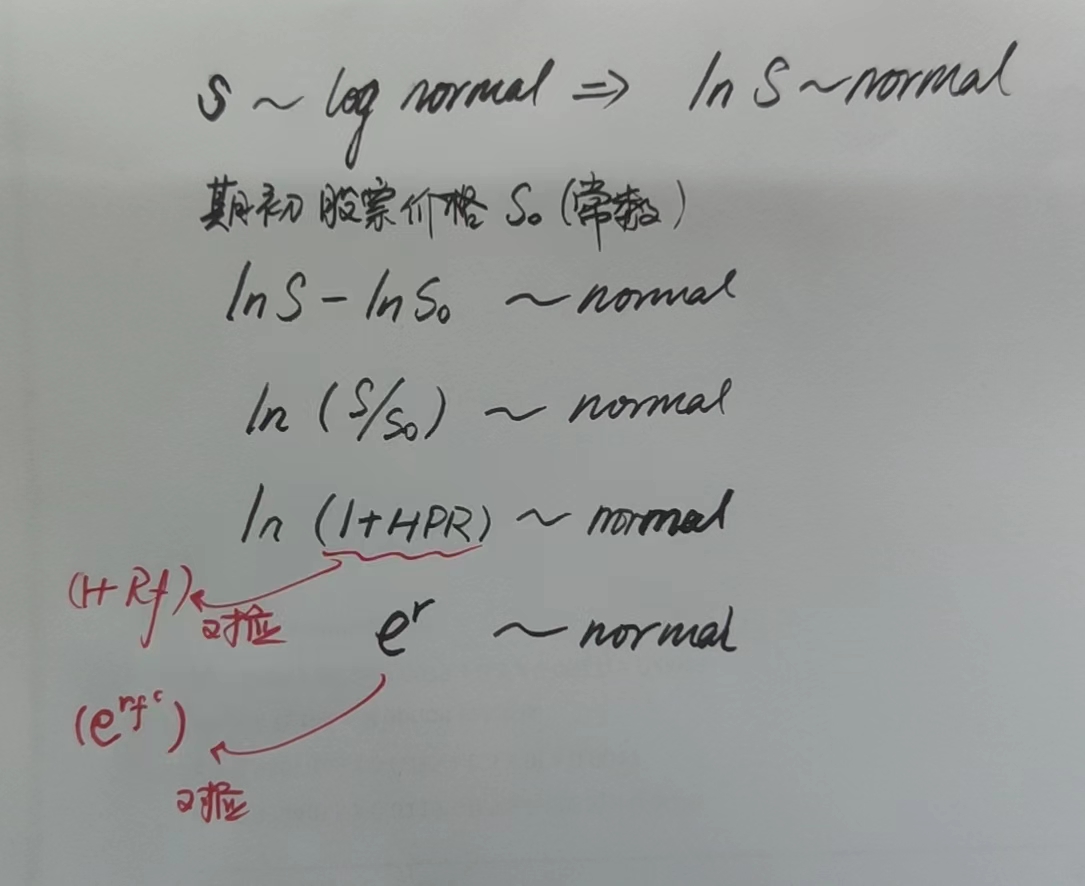 S ~ log normal ⇒ ln S ~ normal
期初股票价格 S₀ (常数)
ln S - ln S₀ ~ normal
ln (S/S₀) ~ normal
ln (1+HPR) ~ normal
(1+Rf) 对应
eʳ ~ normal
(e^{rf^c})
对应